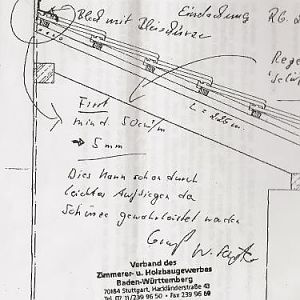 Blech mit Bleischürze
Eindeckung
RG. 0
Rege
L = 
First
mind. 50 cm²/m
→ 5 mm
Dies kann schon durch
leichtes Aufliegen der
Schürze gewährleistet werden
Verband des
Zimmerer- u. Holzbaugewerbes
Baden-Württemberg
70184 Stuttgart, Hackländerstraße 43
Tel. 07 11/239 96 50 • Fax 239 96 60